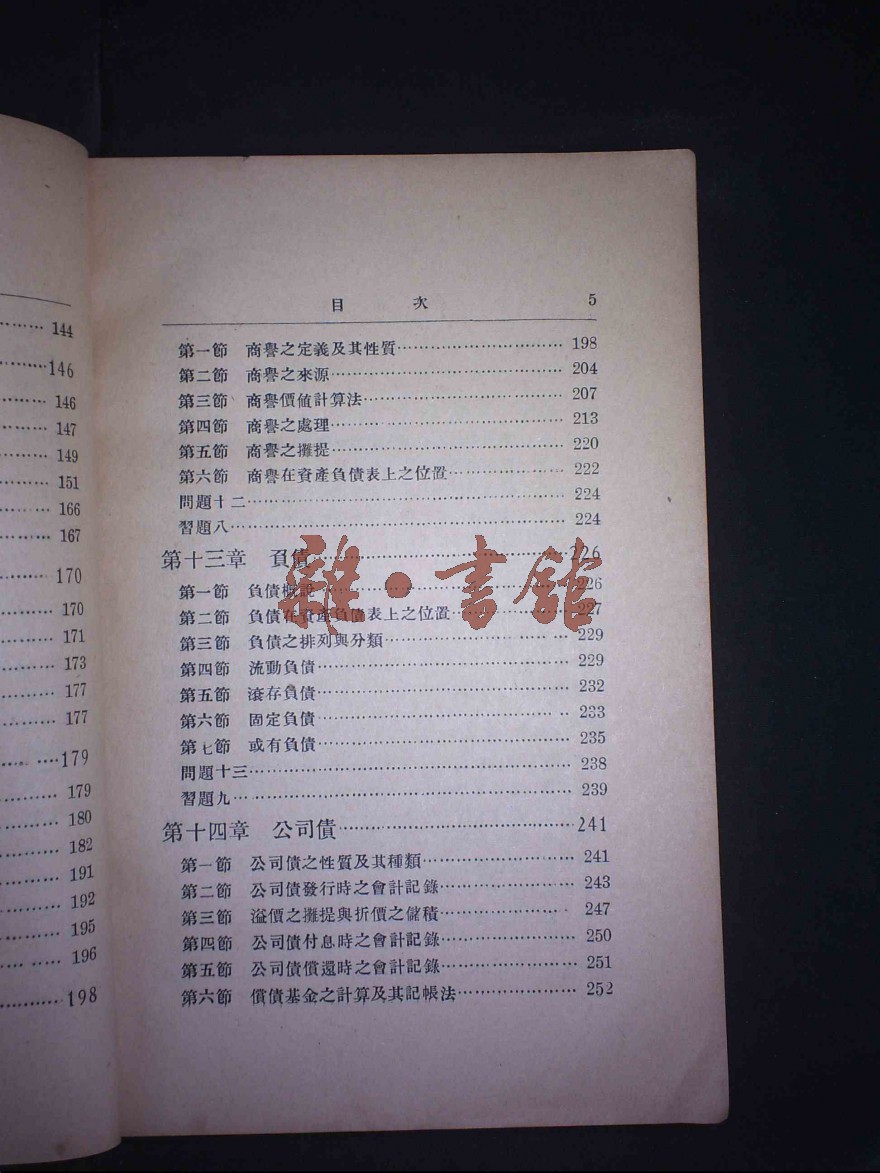 144
146
146
147
149
151
166
167
170
170
171
173
177
177
179
179
180
182
191
192
195
196
198
目 次 5
第一節 商譽之定義及其性質 198
第二節 商譽之來源 204
第三節 商譽價値計算法 207
第四節 商譽之處理 213
第五節 商譽之攤提 220
第六節 商譽在資產負債表上之位置 222
問題十二 224
習題八 224
第十三章 負債 226
第一節 負債概說 226
第二節 負債在資產負債表上之位置 227
第三節 負債之排列與分類 229
第四節 流動負債 229
第五節 滾存負債 232
第六節 固定負債 233
第七節 或有負債 235
問題十三 238
習題九 239
第十四章 公司債 241
第一節 公司債之性質及其種類 241
第二節 公司債發行時之會計記錄 243
第三節 溢價之攤提與折價之儲積 247
第四節 公司債付息時之會計記錄 250
第五節 公司債償還時之會計記錄 251
第六節 償債基金之計算及其記帳法 252
雜·書館